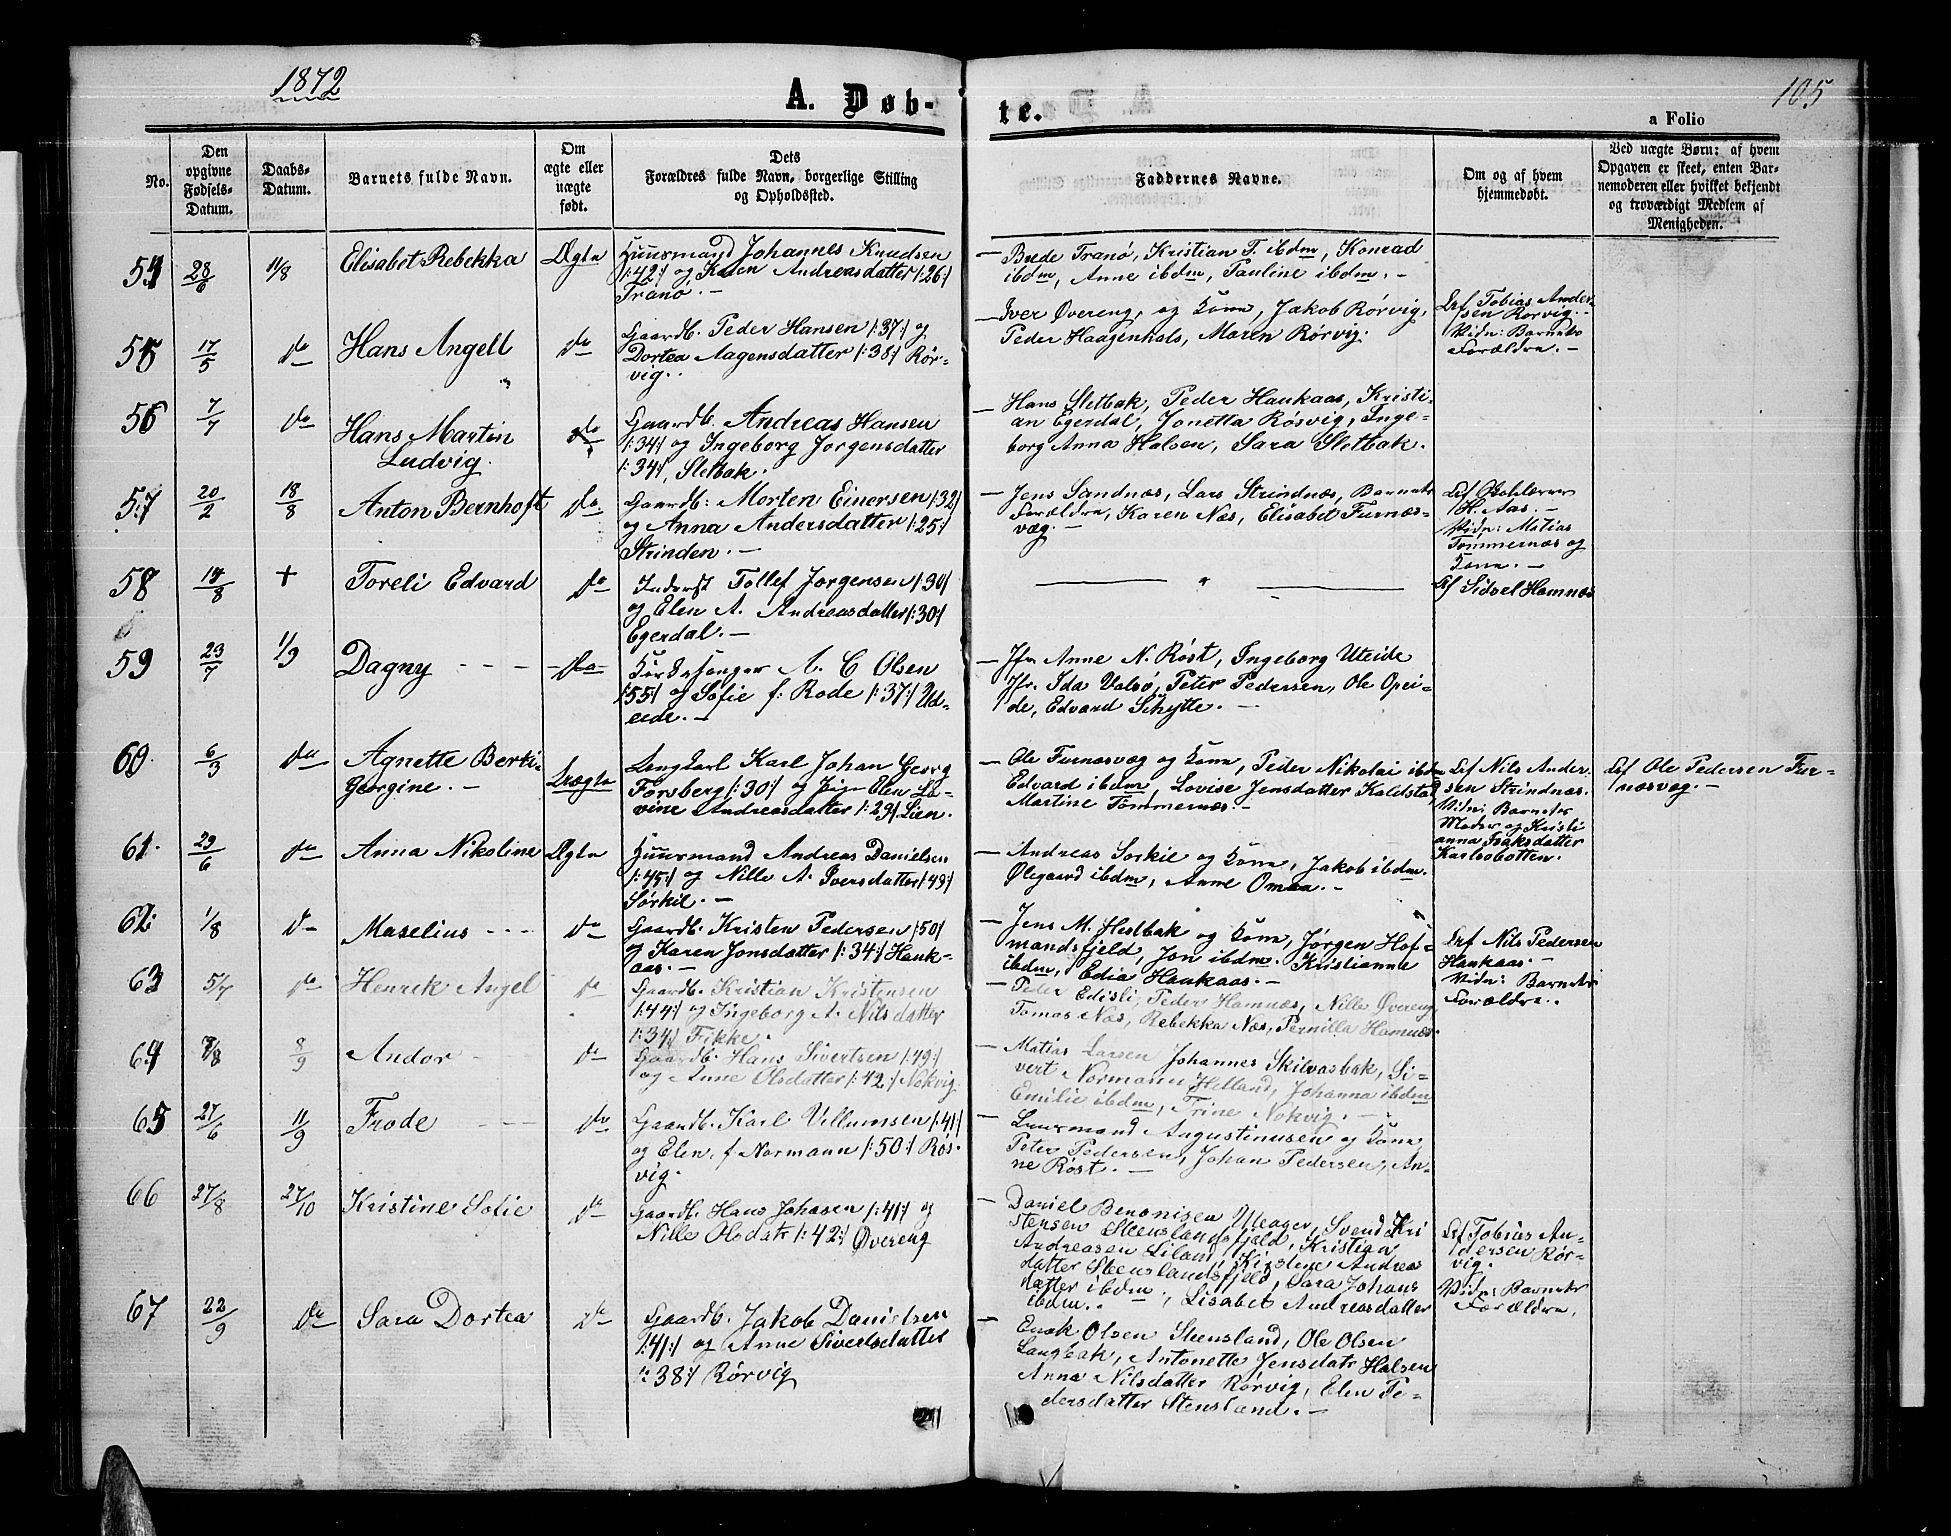 1872
A. Døb-
te.
105
a Folio
No.
Den opgivne Fødsels-Datum.
Daabs-Datum.
Barnets fulde Navn.
Om ægte eller uægte født.
Dets Forældres fulde Navn, borgerlige Stilling og Opholdssted.
Faddernes Navne.
Om og af hvem hjemmedøbt.
Ved uægte Børn: af hvem Opgaven er skeet, enten Barnemoderen eller hvilket bekjendt og troværdigt Medlem af Menigheden.
54 28/6 11/8 Elisabet Rebekka Ægte
Huusmand Johannes Knudsen
1:42:1 og Karen Andreasdatter 1:26:1
Tranø. —
— Brede Tranø, Kristian T. ibdm, Konrad
ibdm, Anne ibdm, Pauline ibdm. —
55 17/5 do Hans Angell do
Gaardb. Peder Hansen 1:37:1 og
Dortea Aagensdatter 1:38:1 Rør-
vig.
— Iver Øvereng, og Kone, Jakob Rørvig,
Peder Haagenhals, Maren Rørvig.
Lrf Tobias Ander-
sen Rørvig. —
Vidn: Barnets
Forældre. —
56 7/7 do Hans Martin
Ludvig. do
Gaardb. Andreas Hansen
1:34:1 og Ingeborg Jørgensdatter
1:34:1, Sletbak.
— Hans Sletbak, Peder Haukaas, Kristi-
an Egerdal, Jonetta Røsvig, Inge-
borg Anna Halsen, Sara Sletbak.
57 20/2 18/8 Anton Bernhoft do
Gaardb: Morten Einersen 1:32:1
og Anna Andersdatter 1:25:1
Strinden. —
— Jens Sandnæs, Lars Strindnæs, Barnets
Forældre, Karen Næs, Elisabet Furnæs-
væg. —
H. Aas. —
Vidn: Matias
Tømmernæs og
Kone. —
58 14/8 + Toreli Edvard do
Inderst Tollef Jørgensen 1:30:1
og Elen A. Andreasdatter 1:30:1
Egerdal. —
Lrf Sidsel Hamnæs
59 23/7 1/9 Dagny do
Kirkesanger A. C Olsen
1:55:1 og Sofie f: Rode 1:37:1 Ud-
eide. —
— Jfr Anne N. Røst, Ingeborg Uteide
Jfr. Ida Valsø, Peter Pedersen, Ole Opei-
de, Edvard Schytte. —
60 6/3 do Agnette Berti-
Georgine. — Uægte
Ungkarl Karl Johan Georg
Forsberg 1:30:1 og Pigen Elen La-
vine Andreasdatter 1:29:1 Lien.
— Ole Furnæsvæg og Kone, Peder Nikolai ibdm
Edvard ibdm, Lovise Jensdatter Kaldstad,
Martine Tømmernæs. —
Lrf Nils Ander-
sen Strindnæs.
Vidn: Barnets
Moder og Kristi
anna Isaksdatter
Karlsobotten.
Lrf Ole Pedersen Fur-
næsvæg. —
61 29/6 do Anna Nikoline Ægte
Huusmand Andreas Danielsen
1:45:1 og Nille A. Iversdatter 1:49:1
Sørkil. —
— Andreas Sørkil og Kone, Jakob ibdm.
Olegaard ibdm, Anne Omaa. —
62 1/8 do Maselius do
Gaardb. Kristen Pedersen 1:50:1
og Karen Jonsdatter 1:34:1 Hauk-
aas. —
— Jens M. Hestbak og Kone, Jørgen Hof-
mandsfjeld, Jon ibdm. Kristianne
ibdm, Edia Haukaas. —
Lrf Nils Pedersen
Haukaas. —
Vidn: Barnets
Forældre.
63 5/7 do Henrik Angel do
Gaardb. Kristian Kristensen
1:44:1 og Ingeborg A. Nilsdatter
1:34:1 Fikke.
— Peder Edisli, Peder Hamnæs, Nille Øvereng
Tomas Næs, Rebekka Næs, Pernilla Hamnæs.
64 3/8 8/9 Andor do
Gaardb. Hans Sivertsen 1:49:1
og Anne Olsdatter 1:42:1 Nokvig.
— Matias Larsen Johannes Skilvasbak, Si-
vert Normann Helland, Johanna ibdm
Emilie ibdm, Trine Nokvig. —
65 27/6 11/9 Frode do
Gaardb. Karl Villumsen 1:41:1
og Elen, f Normann 1:50:1 Røs-
vig.
— Augustinusen og Kone
Peter Pedersen, Johan Pedersen, An-
ne Røst. —
66 27/8 27/10 Kristine Sofie do
Gaardb. Hans Johasen 1:41:1 og
Nille Olsdatr 1:42:1 Øvereng
— Daniel Benonisen Myager, Svend Kri
stensen Steenslandsfjeld, Kristian
Andreasen Liland, Kirstene Andreas
datter Steenslandsfjeld, Sara Johans
datter ibdm, Lisabet Andreasdatter
ibdm.
Lrf Tobias An-
dersen Rør-
vig.
Vidn: Barnets
Forældre.
67 22/9 do Sara Dortea do
Gaardb. Jakob Danielsen
1:41:1 og Anne Sivertsdatter
1:38:1 Rørvig
— Enok Olsen Steensland, Ole Olsen
Langbak, Antonette Jensdatr Halsen
Anna Nilsdatter Rørvig, Elen Pe-
dersdatter Stensland. —